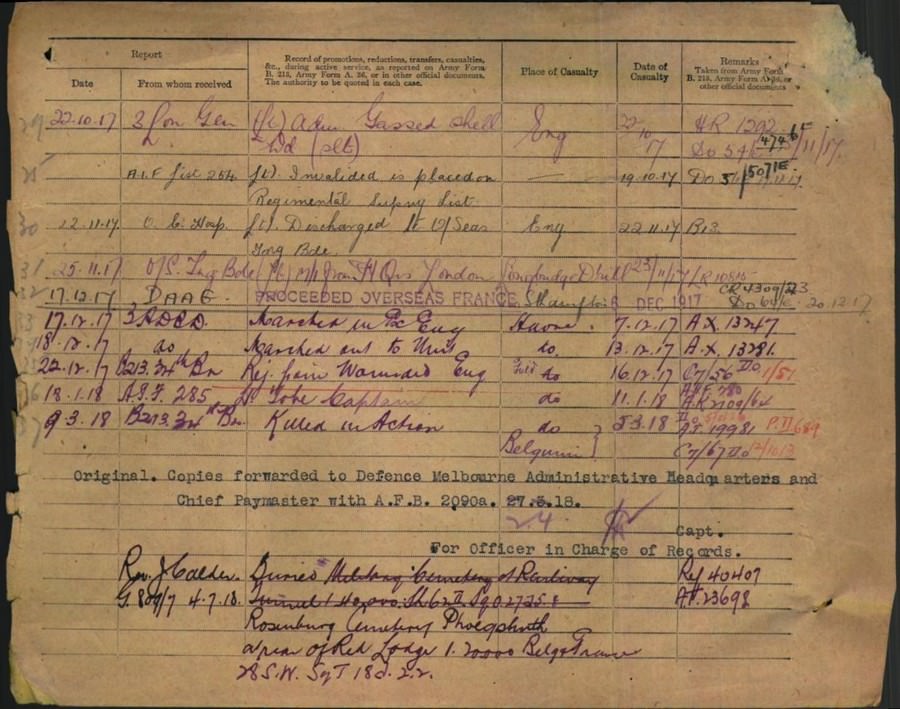 Report
Record of promotions, reductions, transfers, casualties, &c., during active service, as reported on Army Form B. 213, Army Form A. 36, or in other official documents. The authority to be quoted in each case.
Place of Casualty
Date of Casualty
Remarks
Taken from Army Form B. 213, Army Form A. 36, or other official documents
Date
From whom received
22.10.17 3 Lon Gen (Lt) Adm Gassed shell Eng 22/10 HR 1292
Wd (slt) 17
A.I.F list 254 (Lt). Invalided is placed on — 19.10.17 Do
Regimental Supny List.
22.11.17 O. C. Hosp. (Lt). Discharged to O/Seas Eng 22.11.17 B13.
Trng Bde.
25.11.17 O/S. Trng Bde (Lt) M/I from H Qrs London Longbridge Dvrill 23/11/17
17.12.17 DAAG. PROCEEDED OVERSEAS FRANCE, DEC 1917 20.12.17
17.12.17 3 ADBD. Marched in Ex Eng Havre. 7.12.17 A.X. 13247
18.12.17 do Marched out to Unit do. 13.12.17 A.X. 13281.
22.12.17 B213. 34th Bn Rej. from Wounded Eng Field do 16.12.17 C7/56
18.1.18 A.I.F. 285 To be Captain do 11.1.18
9.3.18 B213. 34th Bn. Killed in Action do 5.3.18 AF. 19981
Belgium C7/67
Original. Copies forwarded to Defence Melbourne Administrative Headquarters and
Chief Paymaster with A.F.B. 2090a. 27.3.18.
2.4
Capt.
For Officer in Charge of Records.
Rev. J Calder. Buried Military Cemetery at Railway Ref 40407
4.7.18. Tunnel 1.40,000. AF.23698
Rosenburg Cemetery
area of Red Lodge 1.20000 Belg & France
28 S.W. Sq T 18d. 2.2.